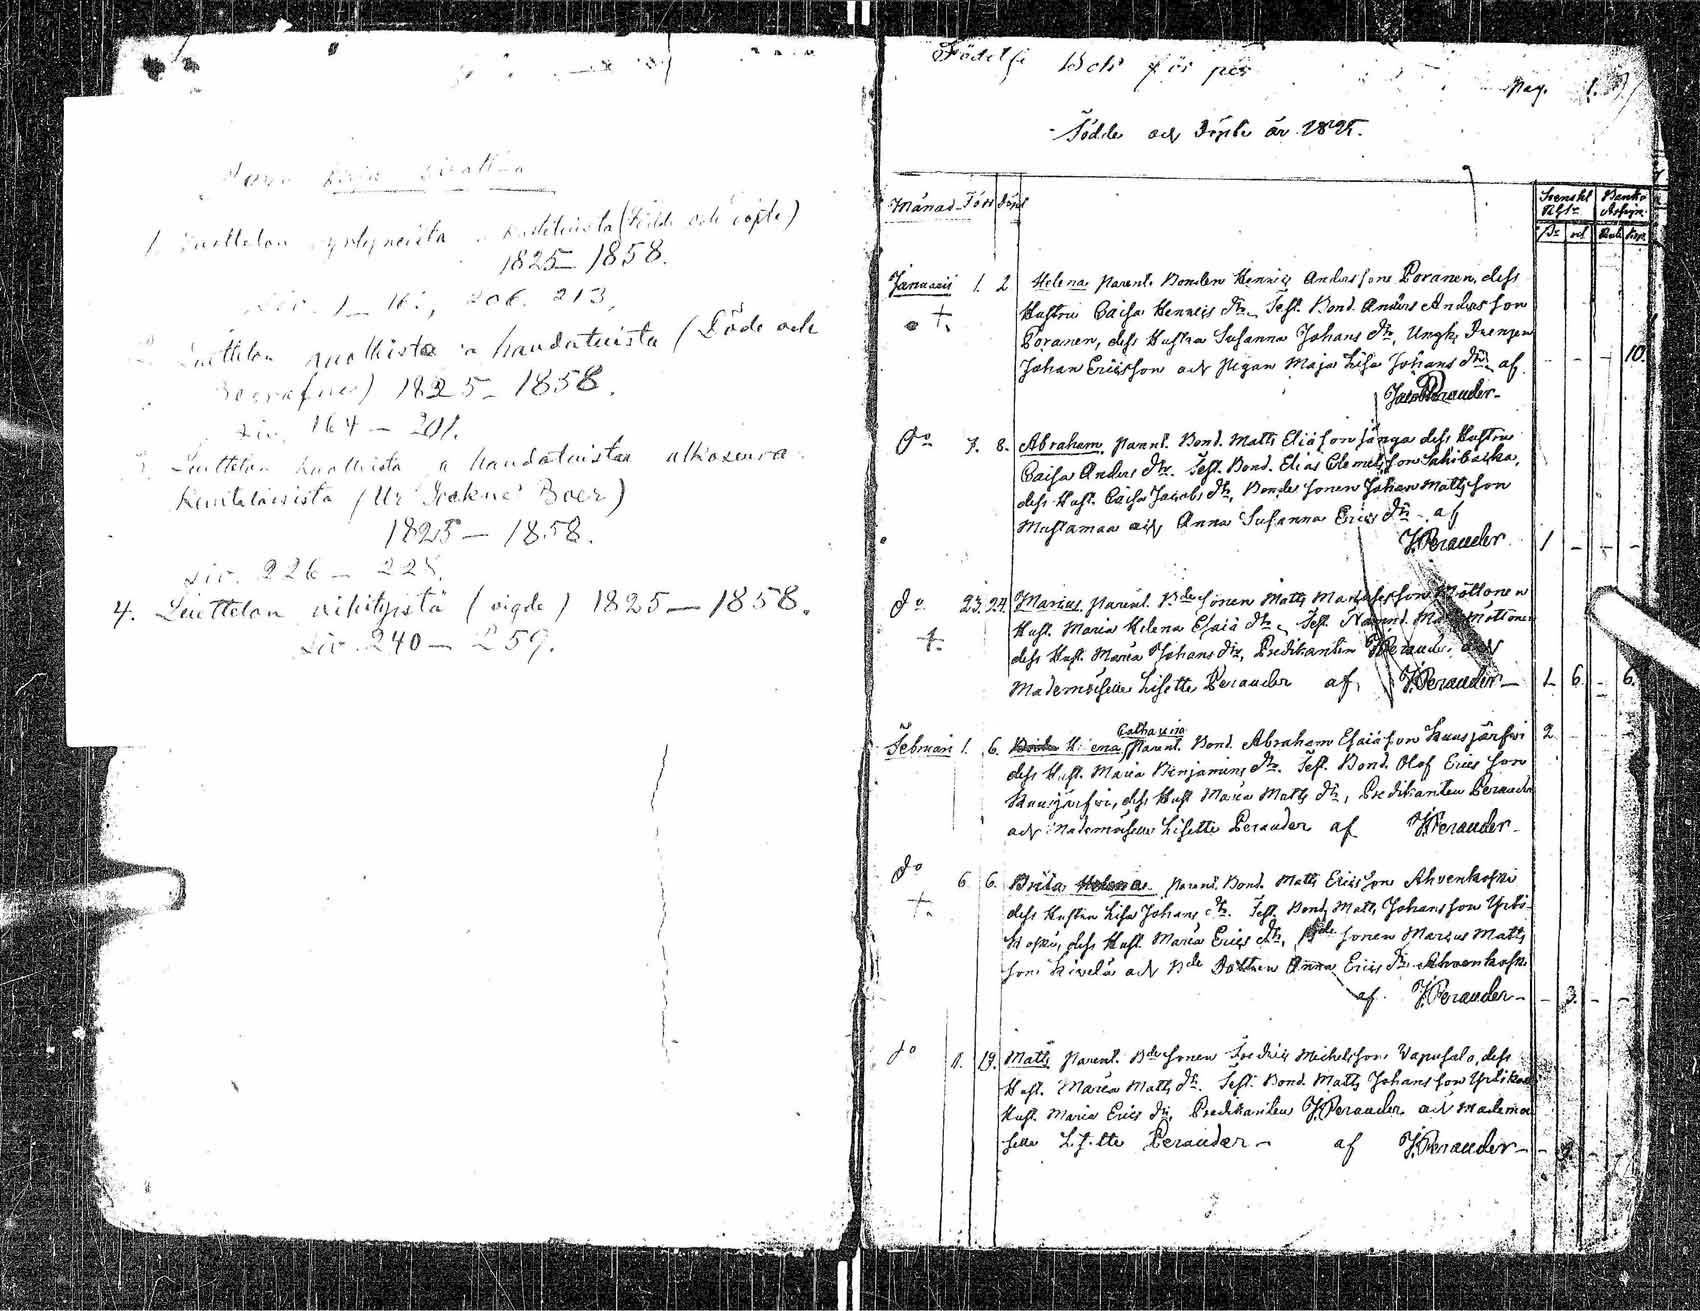 kirja sisältää
1. Luettelon syntyneistä ja kastetuista (Födde och döpte)
1825 – 1858.
siv. 1 – 161, 206. 213.
2. Luettelon kuolleista ja haudatuista (Döde och
Begrafne) 1825 – 1858.
siv. 164 – 201.
3. Luettelon kuolleista ja haudatuista ulkoseura-
kuntalaisista (Ur Sockne Boer)
1825 – 1858.
siv. 226 – 228.
4. Luettelon vihityistä (vigde) 1825 – 1858.
siv. 240 – 259.
Födelse Bok för
pag. 1.
Födde och Döpte år 1825.
Månad Föd Döpt
Svenskt Rgls Banko Assign.
Januarii 1. 2 Helena parent. Bonden Henric Andersson Poranen, dess
Hustru Caisa Henrics dr. Test. Bond. Anders Andersson
Poranen, dess Hustru Susanna Johans dr, Ungk. Drengen
Johan Ericsson och Pigan Maja Lisa Johans dr af 10.
Jacob Perander
do 7. 8. Abraham, parent. Bond. Matts Eliasson Jånga dess Hustru
Caisa Anders dr. Test. Bond. Elias Clemetsson
dess Hust. Caisa Jacobs dr, Bonde sonen Johan Mattsson
Mustamaa och Anna Susanna Erics dr af
J. Perander 1 – – –
do 23. 24. Marius, parent. Bde sonen Matts Mariusson Möttönen
Hust. Maria Helena Esaiæ dr, Test. Nämnd. Möttönen
dess Hust. Maria Johans dr, Predikanten J. Perander och
Mademoiselle Lisette Perander af J. Perander – 1. 6. – 6.
Februari 1. 6. Catharina parent. Bond. Abraham Esaiæson Kuusjärfwi 2
dess Hust. Maria Benjamins dr. Test. Bond. Olof Ericsson
Kuusjärfwi, dess Hust Maria Matts dr, Predikanten Perander
och Mademoiselle Lisette Perander af J. Perander –
do 6 6. Brita Helena parent. Bond. Matts Ericsson Ahvenkoski
dess Hustru Lisa Johans dr. Test. Bond. Matts Johansson Yrtti-
koski, dess Hust. Maria Erics dr, Bde sonen Marcus Matts
son Kivelä och Bde Dottren Anna Erics dr Ahvenkoski
af J. Perander – – 3. – –
do 11. 19. Matts, parent. Bde sonen Fredric Michelsson Vapusalo, dess
Hust. Maria Matts dr. Test. Bond. Matts Johansson Yrttikoski
Hust. Maria Erics dr, Predikanten J. Perander och Mademoi
selle Lisette Perander – af J. Perander –